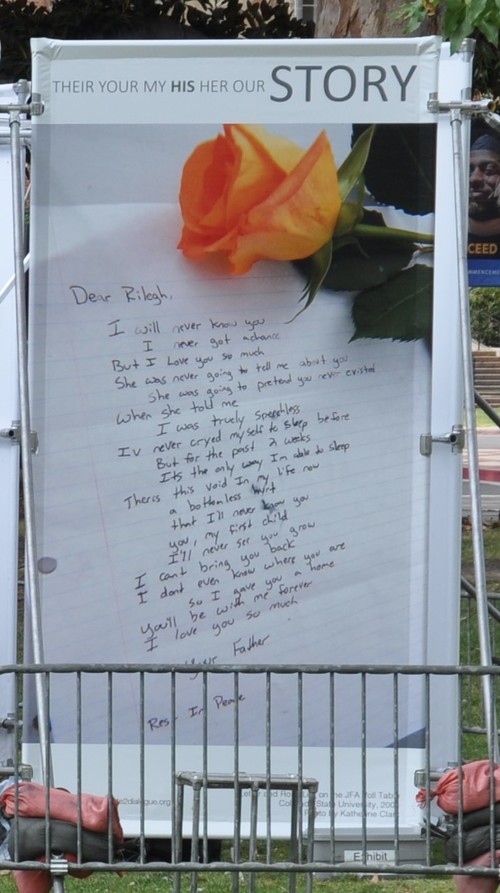 THEIR YOUR MY HIS HER OUR STORY
Dear Rilegh,
I will never know you
I never got a chance
But I Love you so much
She was never going to tell me about you
She was going to pretend you never existed
When she told me
I was truely speechless
Iv never cryed myself to sleep before
But for the past 2 weeks
Its the only way Im able to sleep
Theris this void In my life now
a bottomless hurt
that I'll never know you
you, my first child
I'll never see you grow
I cant bring you back
I dont even know where you are
so I gave you a home
you'll be with me forever
I love you so much
Your Father
Rest In Peace
CEED
2dialogue.org
on the JFA Poll Tab
State University, 200
Photo by Katherine
Exhibit